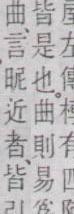 左傳極有四
皆是也。曲則易
曲言昵近者皆引